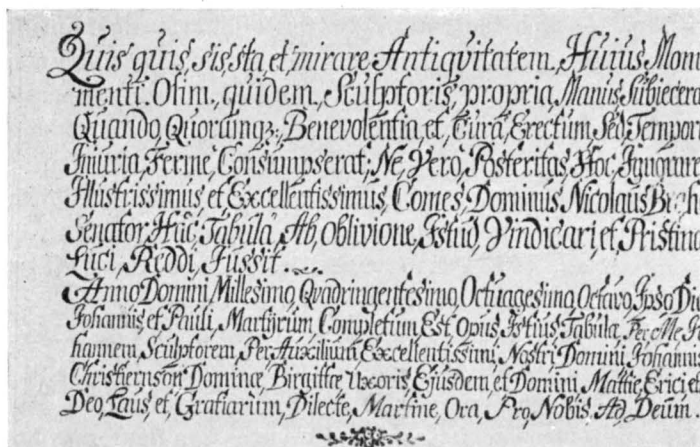 Quis quis, sis, sta, et, mirare Antiqvitatem, Huius Monu
menti. Olim, quidem, Sculptoris, propria, Manus, Subiecera
Quando, Quorumqz, Benevolentia, et, Cura, Erectum Sed Tempori
Iniuria, Ferme, Consumpserat; Ne, Vero, Posteritas Hoc, Ignorare
Illustrissimus, et Excellentissimus, Comes, Dominus, Nicolaus Brah
Senator, Hac, Tabula, Ab, Oblivione, Istud, Vindicari, et, Pristina
Luci, Reddi, Jussit.
Anno Domini, Millesimo, Qvadringentesimo, Octuagesimo, Octavo, Ipso Di
Johannis, et Pauli, Martyrum, Completum Est, Opus, Istius, Tabula. Per Me Jo
hannem, Sculptorem, Per Auxilium, Excellentissimi, Nostri Domini, Johannis
Christiernson Dominæ, Birgittæ Uxoris, Ejusdem, et Domini, Mattie, Erici, et
Deo, Laus, et, Gratiarum, Dilecte, Martine, Ora, Pro, Nobis, Ad, Deum.